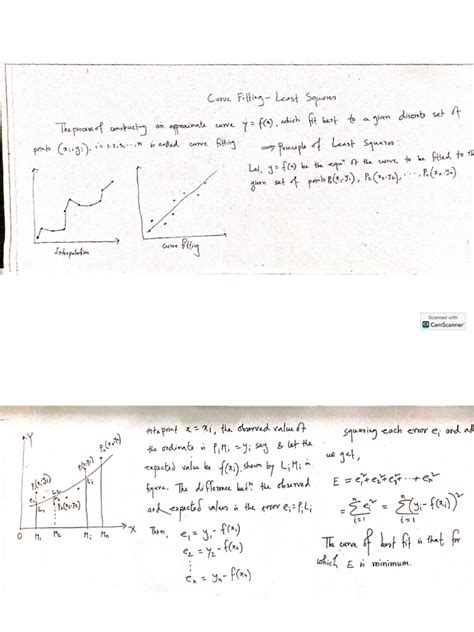 Curve Fitting - Least Squares
The process of constructing an approximate curve y = f(x), which fit best to a given discrete set of
points (xi, yi), i = 1, 2, 3, ..., n is called curve fitting
⟹ Principle of Least Squares:
Let, y = f(x) be the equn of the curve to be fitted to the
given set of points P1(x1, y1), P2(x2, y2), ..., Pn(xn, yn)
Interpolation
Curve fitting
Scanned with
CS CamScanner
point x = xi, the observed value of
the ordinate is PiMi = yi say & let the
expected value be f(xi), shown by LiMi in
figure. The difference betn the observed
and expected values in the error ei = PiLi
Then, e1 = y1 - f(x1)
e2 = y2 - f(x2)
en = yn - f(xn)
Y
P1(x1, y1)
P2(x2, y2)
Pi(xi, yi)
Pn(xn, yn)
e1
L1
L2
Li
O M1 M2 Mi Mn X
squaring each error ei and all
we get,
E = e1² + e2² + e3² + ... + en²
= Σ ei² = Σ (yi - f(xi))²
i=1 i=1
The curve of best fit is that for
which E is minimum.